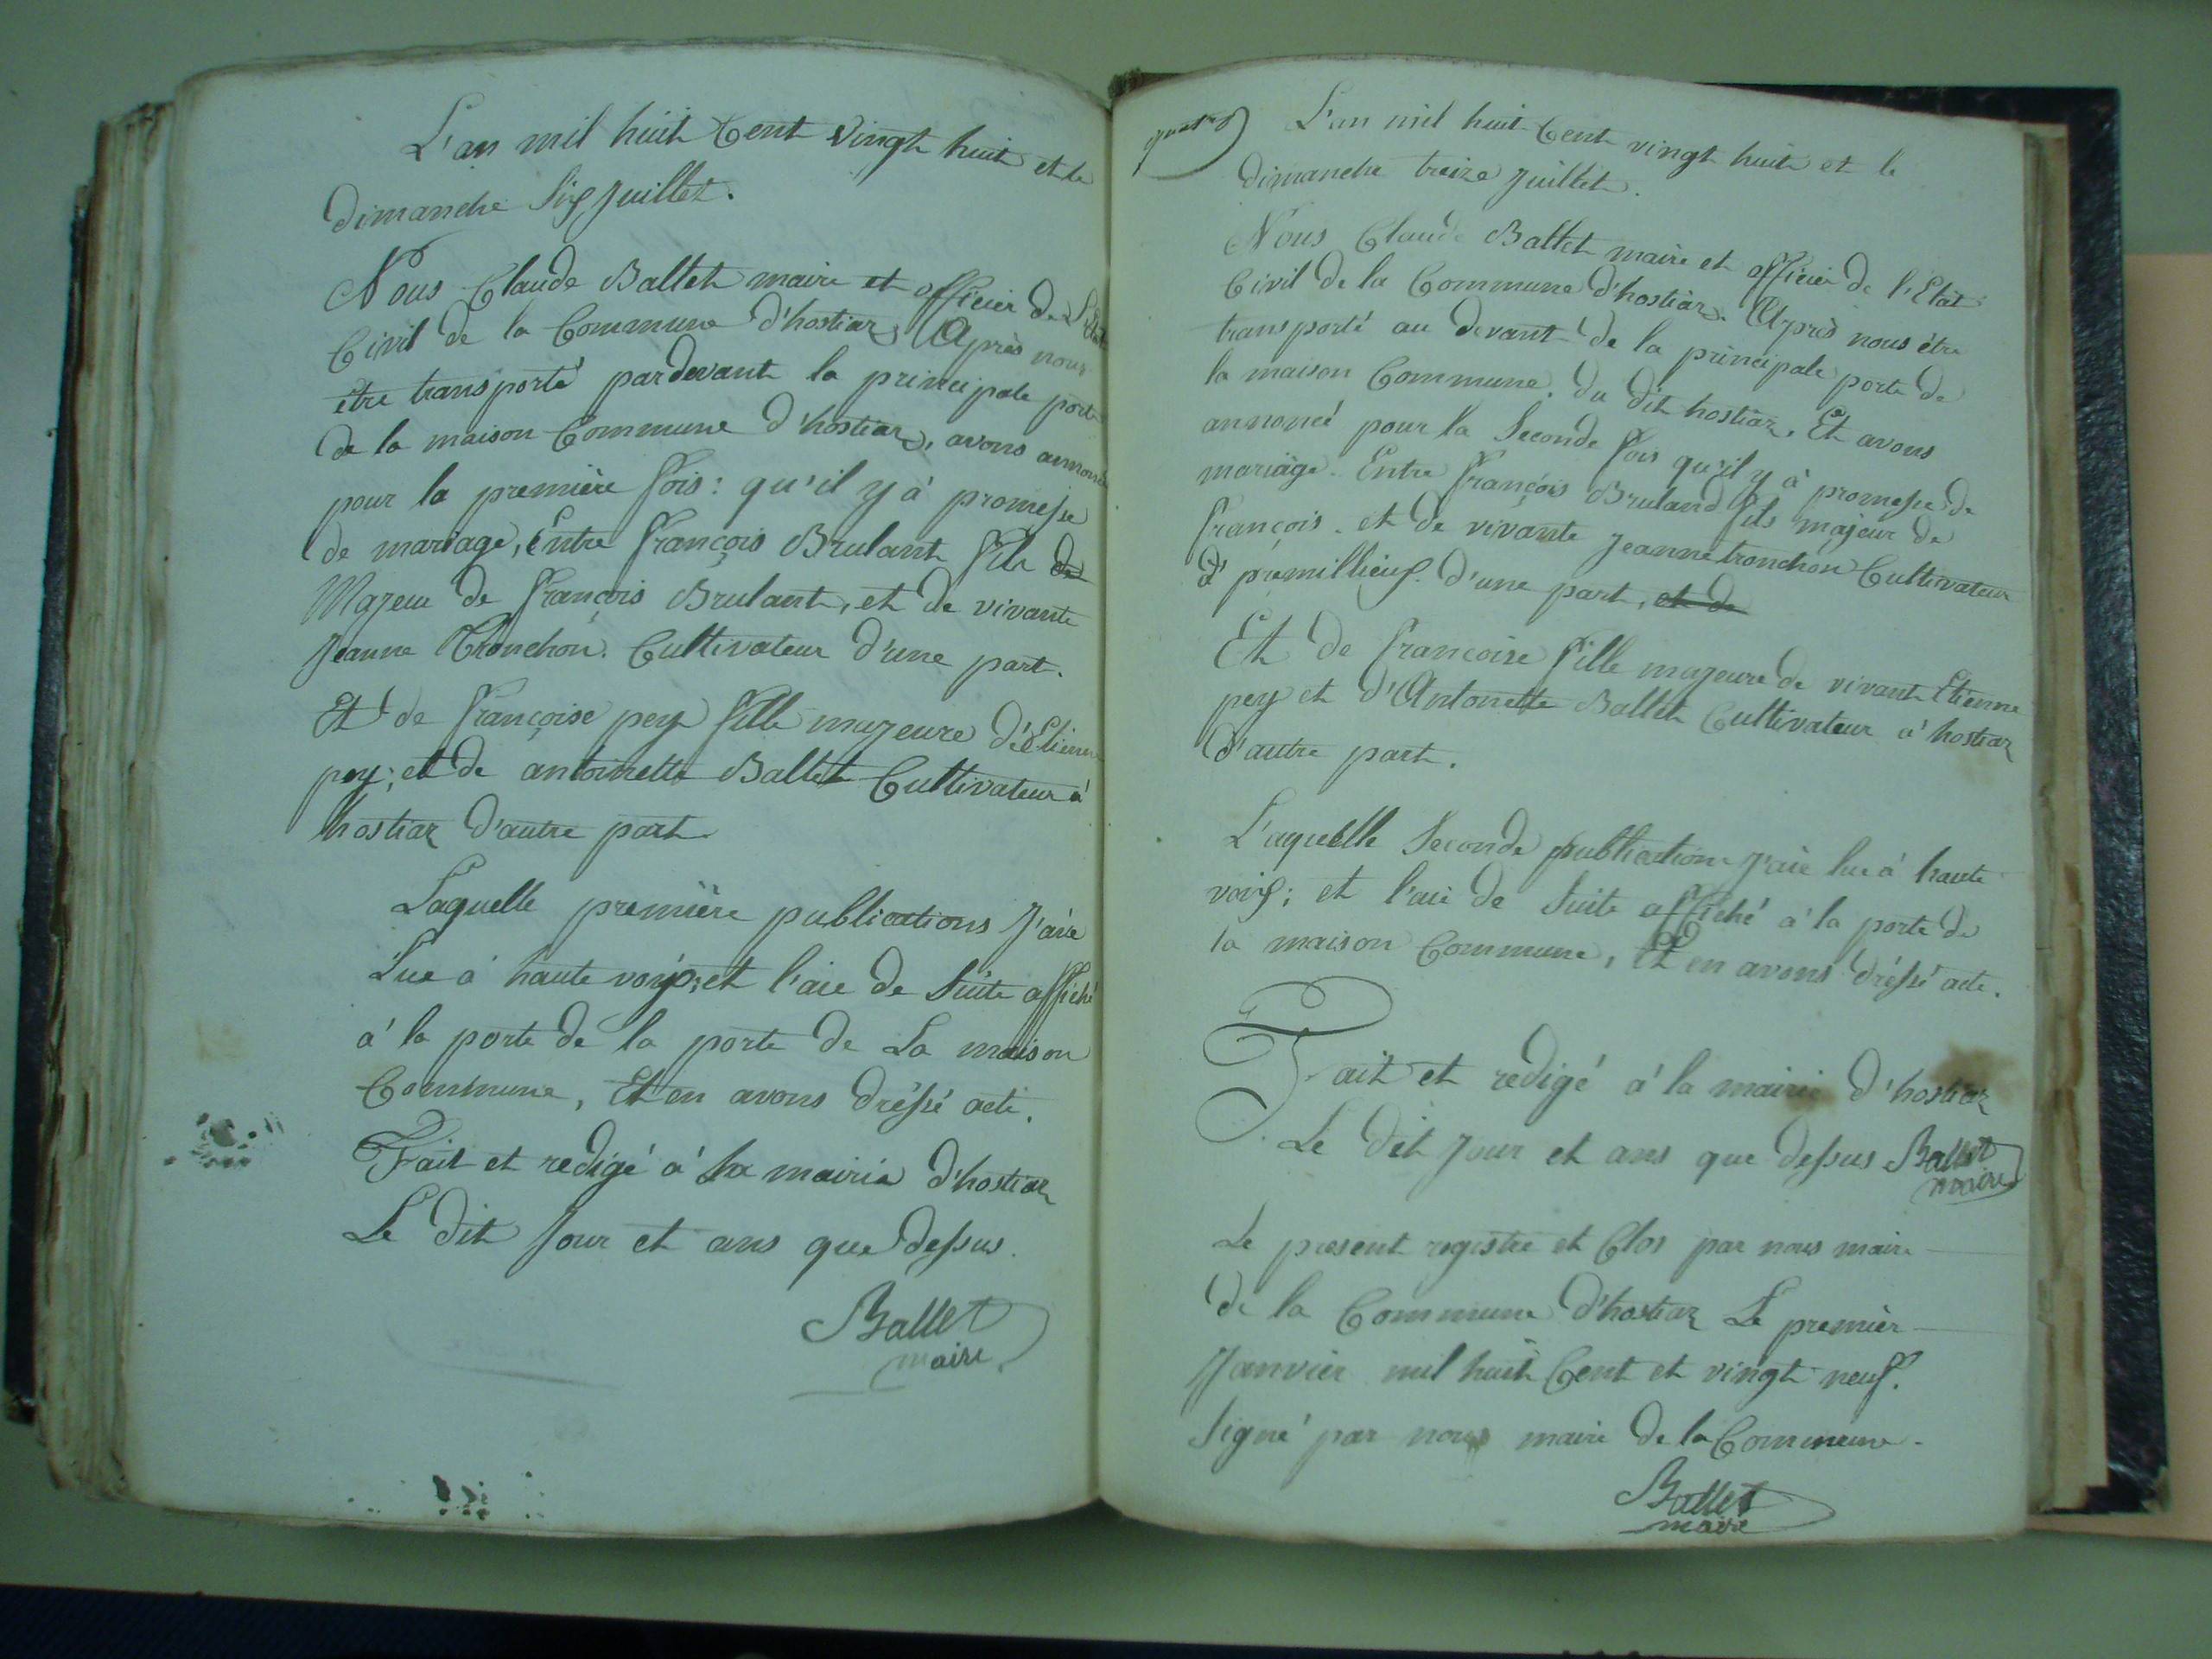 L'an mil huit Cent vingt huit et le
dimanche Six Juillet.
Nous Claude Ballet maire et officier de L'Etat
Civil de la Commune d'hostiaz Après nous
être transporté pardevant la principale porte
de la maison Commune d'hostiaz, avons annoncé
pour la première fois: qu'il y à promesse
de mariage, Entre François Brulant fils de
Majeur de François Brulant, et de vivante
Jeanne Tronchon. Cultivateur d'une part.
Et de françoise pey fille majeure d'Etienne
pey; et de antoinette Ballet Cultivateur à
hostiaz d'autre part
Laquelle première publications J'aie
Lue à haute voix; et l'aie de Suite affiché
à la porte de la porte de La maison
Commune, Et en avons dréssé acte.
Fait et redigé à la mairie d'hostiaz
Le dit Jour et ans que dessus.
Ballet
maire
L'an mil huit Cent vingt huit et le
dimanche treize Juillet.
Nous Claude Ballet maire et officier de l'Etat
Civil de la Commune d'hostiaz. Après nous être
transporté au devant de la principale porte de
la maison Commune. du dit hostiaz, Et avons
annoncé pour la Seconde fois qu'il y à promesse de
mariage. Entre François Bruland fils majeur de
François. et de vivante Jeanne tronchon Cultivateur
d'premillieux. d'une part, et de
Et de Francoise fille majeure de vivant Etienne
pey et d'Antonette Ballet Cultivateur à hostiaz
d'autre part.
L'aquelle Seconde publication J'aie lue à haute
voix; et l'aie de Suite affiché à la porte de
la maison Commune, Et en avons dréssé acte.
Fait et redigé à la mairie d'hostiaz
Le dit Jour et ans que dessus Ballet
maire
Le present registre et Clos par nous maire
de la Commune d'hostiaz Le premier
Janvier mil huit Cent et vingt neuf.
Signé par nous maire de la Commune.
Ballet
maire